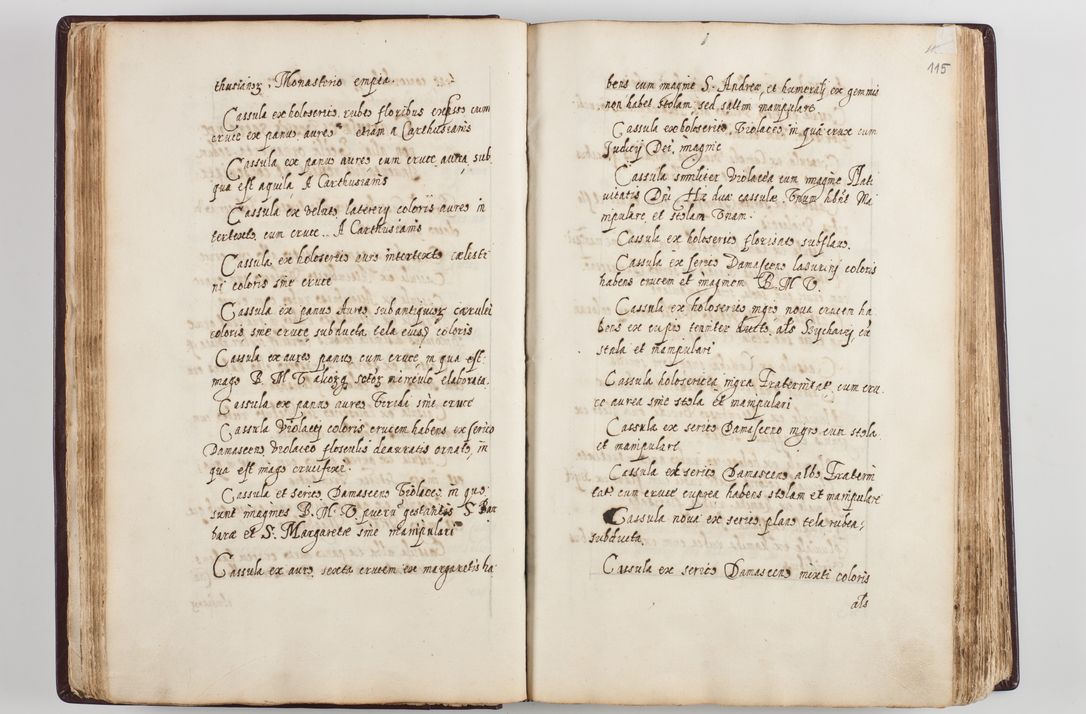 thusianoꝝ Monasterio empta.
Cassula ex holoserico rubeo floribus expresso cum
cruce ex panno aureo etiam a Carthusianis
Cassula ex panno aureo cum cruce aurea, sub
qua est aquila A Carthusianis
Cassula ex veluto lateritij coloris auro in
tertexto, cum cruce .. A Carthusianis
Cassula ex holoserico auro intertexto cælesti
ni coloris sine cruce
Cassula ex panno Aureo subantiquoꝝ cærulei
coloris, sine cruce, subducta tela eiusdē coloris
Cassula ex aureo panno, cum cruce, in qua est
imago B. M. V
Cassula ex panno aureo Viridi sine cruce
Cassula Violacej coloris crucem habens ex serico
Damasceno violaceo flosculis deauratis ornato, in
qua est imago crucifixi.
Cassula ex serico Damasceno Violaceo in quo
sunt imagines B. M. V puerū gestantis S. Bar
baræ et S. Margaretæ sine manipulari
Cassula ex auro sexta crucem ex margaretis ha
115
bens cum imagine S. Andreæ, et humeralj ex gemmis
non habet stolam sed saltem manipulare
Cassula ex holoserico Violaceo, in qua crux cum
Judicij Dei, imagine
Cassula similiter Violacea cum imagine Nati
uitatis Dni Hæ duæ cassulæ Vnum hbnt Ma
nipulare, et stolam Vnam.
Cassula ex holoserico florisato subflavo.
Cassula ex serico Damasceno lasurinj coloris
habens crucem et imaginem B. M. V.
Cassula ex holoserico nigro nova crucem ha
bens ex cupro tenuiter ducto, als cū
stola et manipulari
Cassula holosericea nigra Fraternitat, cum cru
ce aurea sine stola et manipulari
Cassula ex serico Damasceno nigro cum stola
et manipulari
Cassula ex serico Damasceno albo Fraterni
tat cum cruce cuprea habens stolam et manipulare
Cassula nova ex serico plano tela rubea
subducta.
Cassula ex serico Damasceno mixti coloris
als